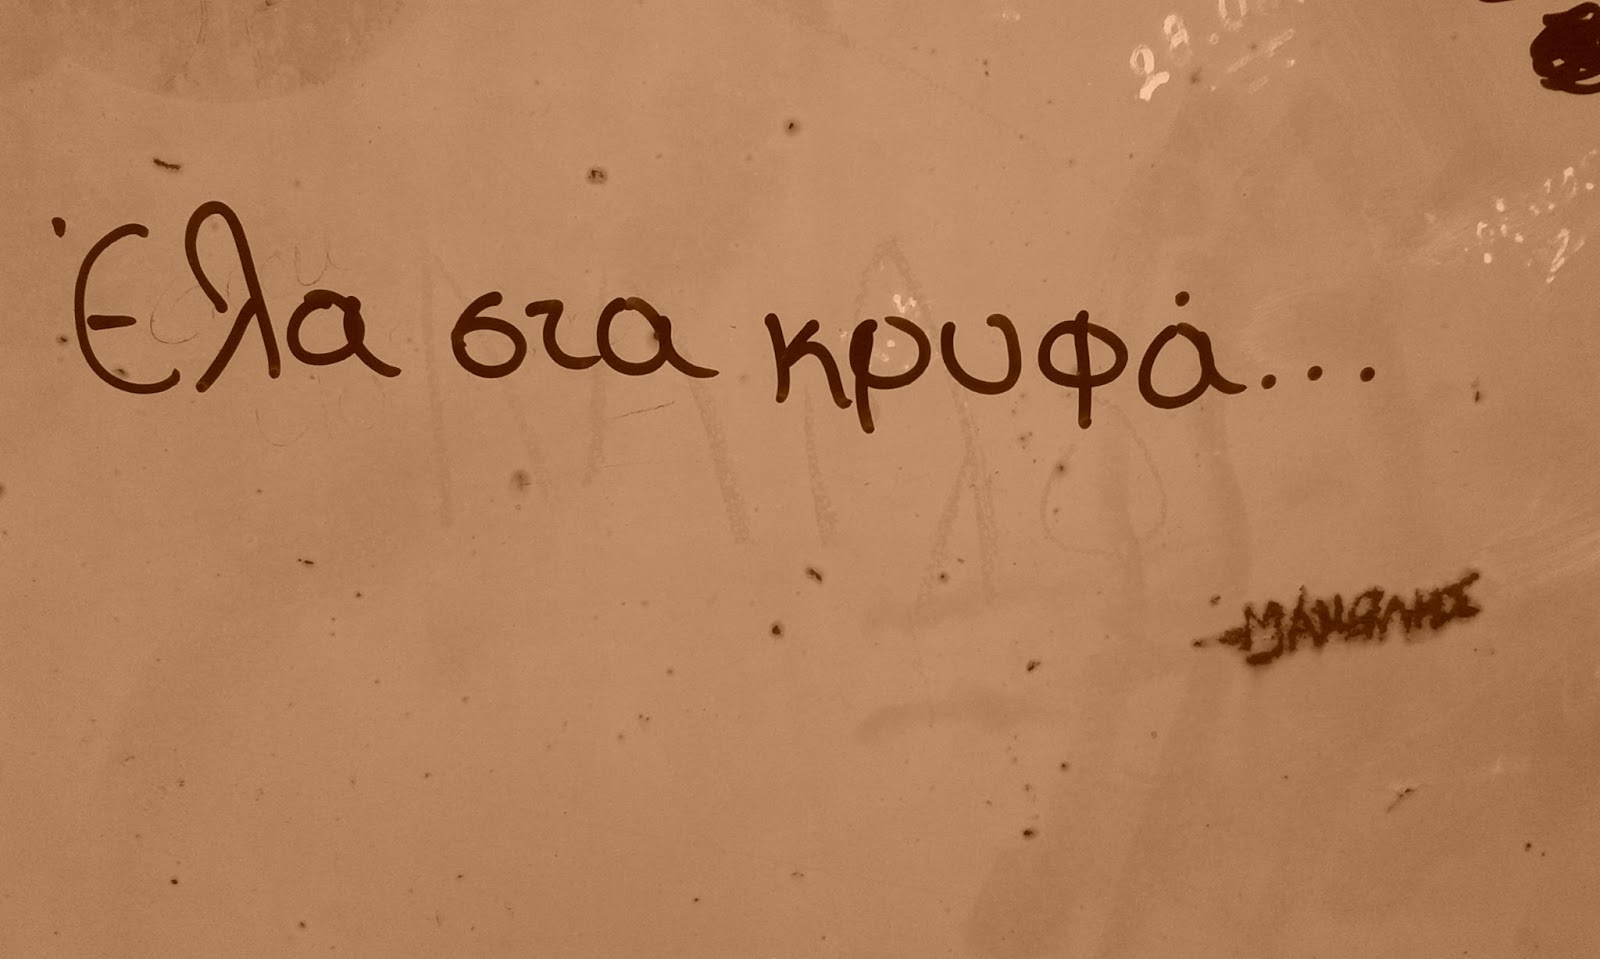 Έλα στα κρυφά...
ΜΑΝΩΛΗΣ